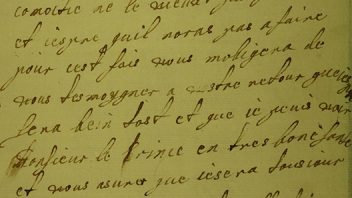 comoitie ne le
et iespre quil noras pas a faire
pour cest fois nous mobligera de
vous tesmoygner a vostre retour que
sera bein tost et que ie puis voir
monsieur le Prince en tres bone sante
et vous asurer que iesera tousiour